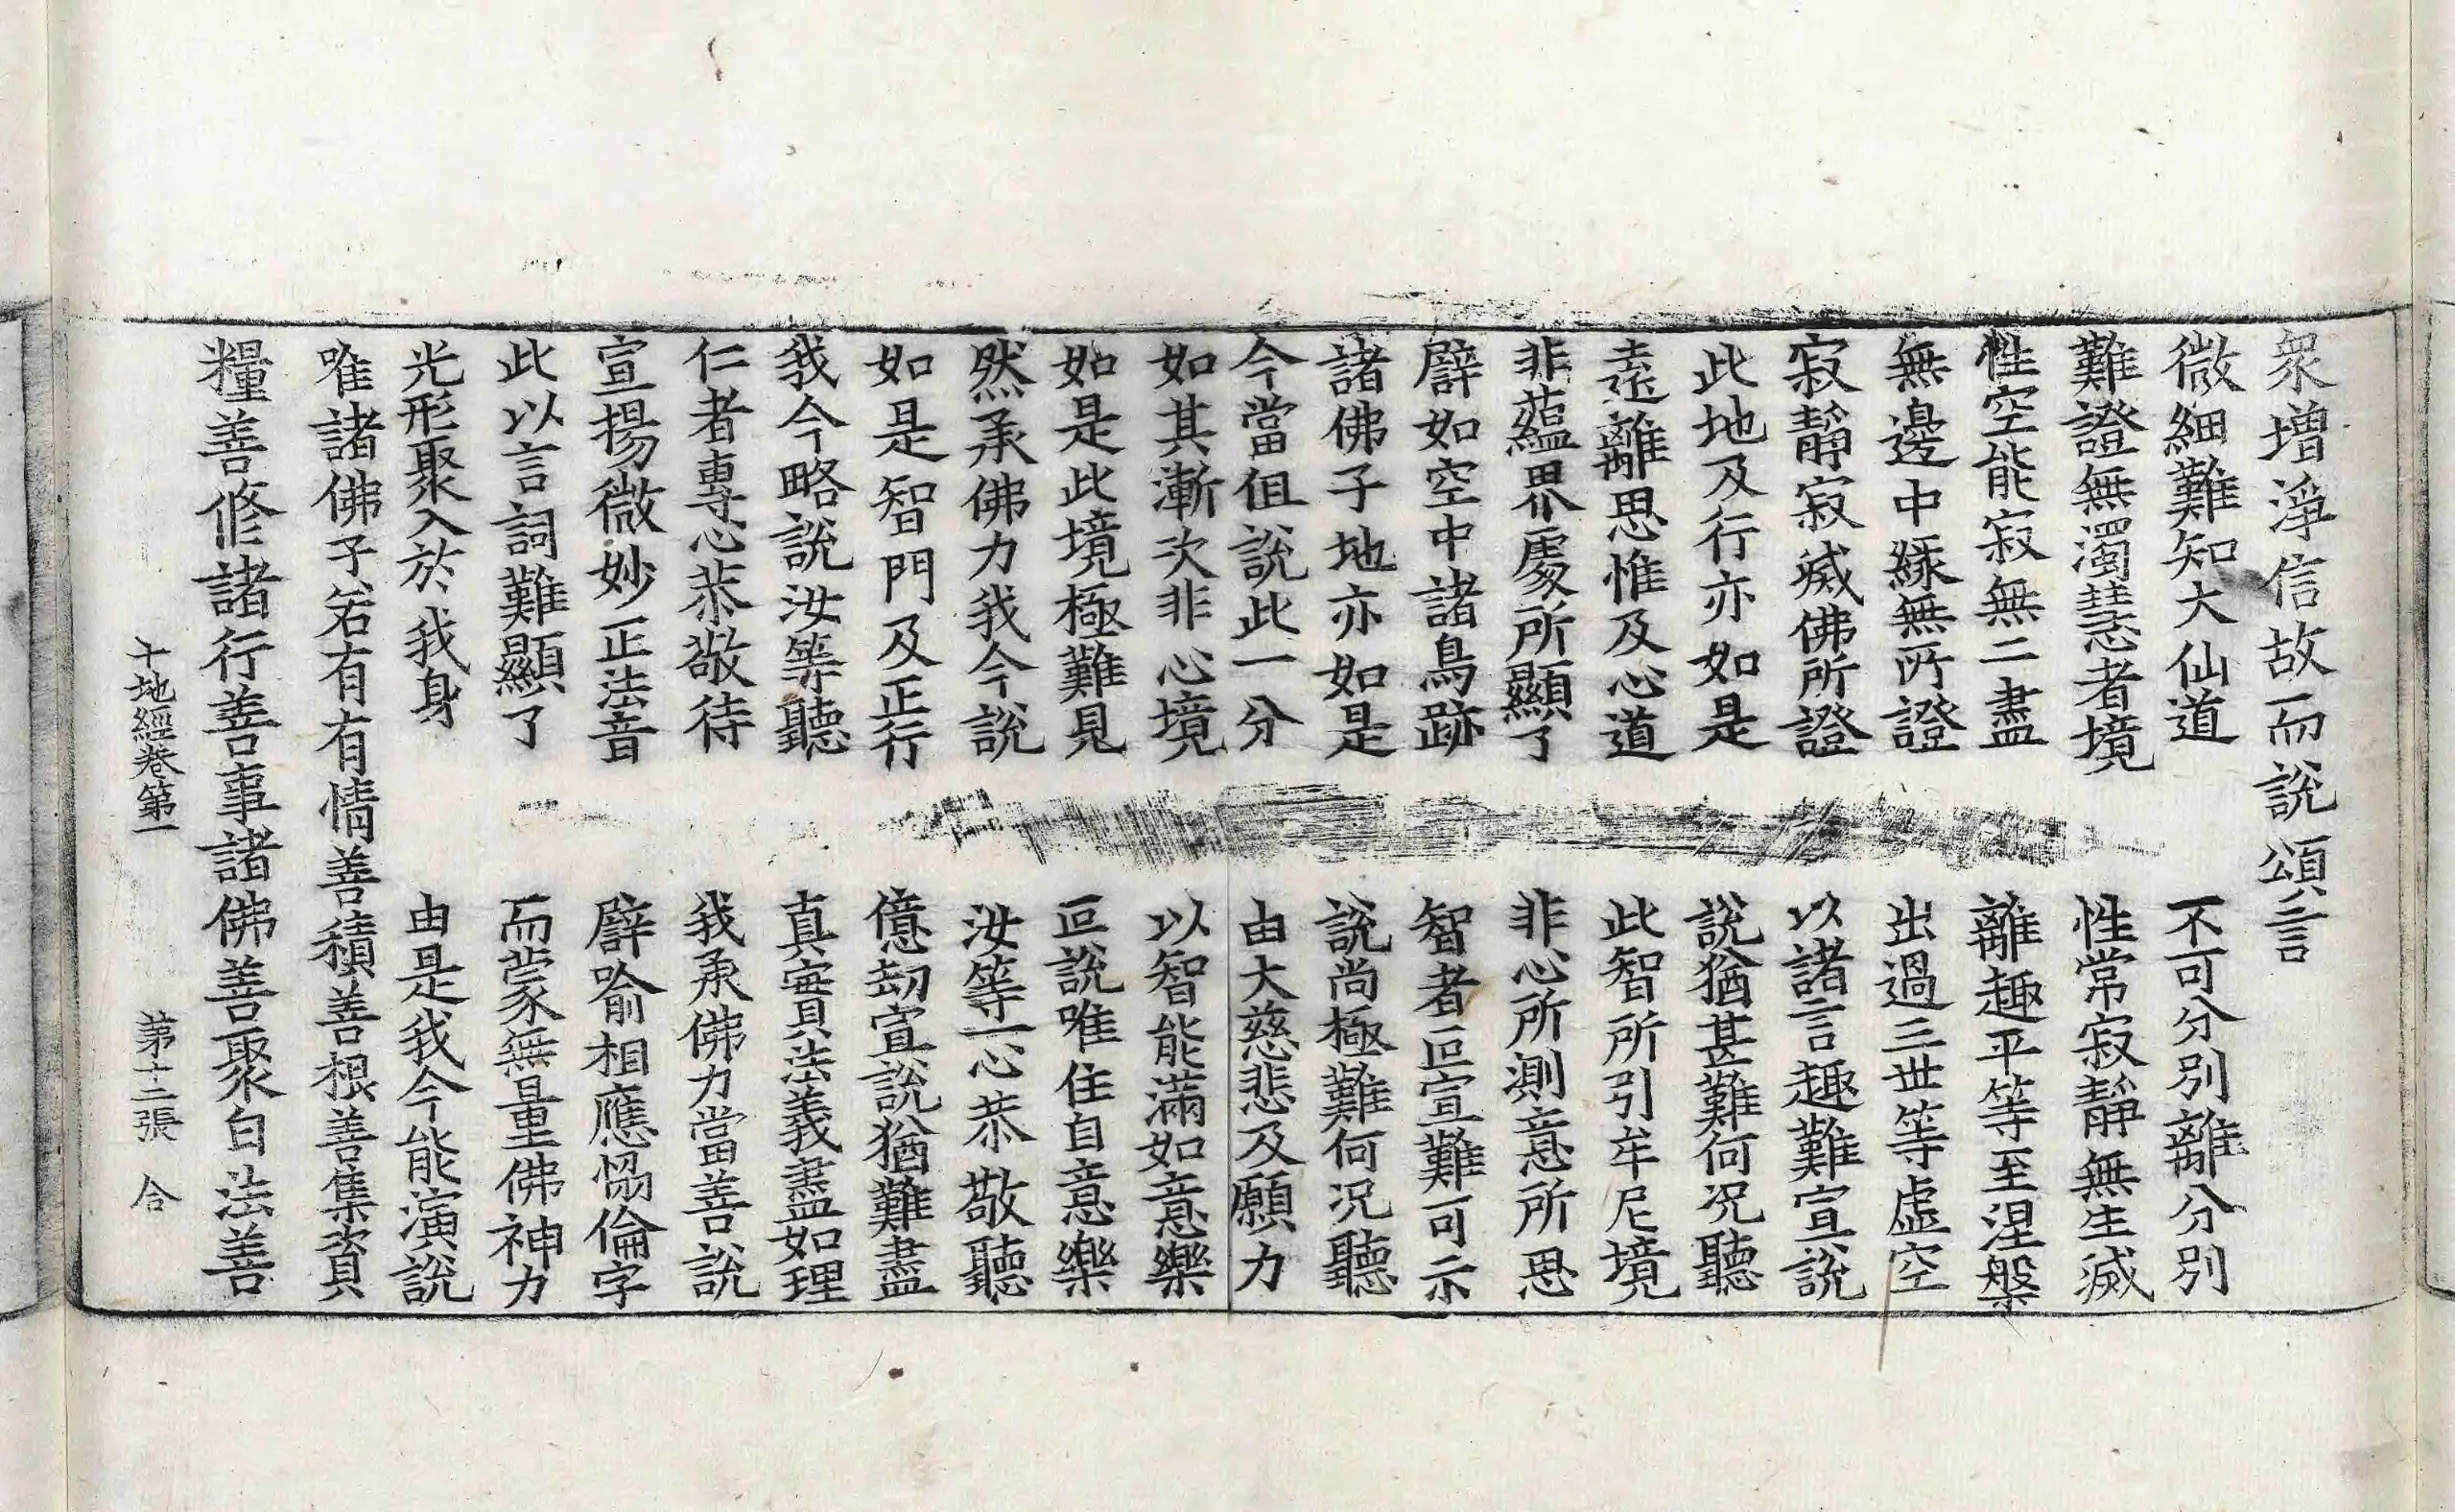 衆增淨信故而說頌言
微細難知大仙道　不可分別離分別
難證無濁慧者境　性常寂靜無生滅
性空能寂無二盡　離趣平等至涅槃
無邊中緣無所證　出過三世等虛空
寂靜寂滅佛所證　以諸言趣難宣說
此地及行亦如是　說猶甚難何況聽
遠離思惟及心道　此智所引牟尼境
非蘊界處所顯了　非心所測意所思
譬如空中諸鳥跡　智者叵宣難可示
諸佛子地亦如是　說尚極難何況聽
今當但說此一分　由大慈悲及願力
如其漸次非心境　以智能滿如意樂
如是此境極難見　叵說唯住自意樂
然承佛力我今說　汝等一心恭敬聽
如是智門及正行　億劫宣說猶難盡
我今略說汝等聽　真實法義盡如理
仁者專心恭敬待　我承佛力當善說
宣揚微妙正法音　譬喻相應恊倫字
此以言詞難顯了　而蒙無量佛神力
光形聚入於我身　由是我今能演說
唯諸佛子若有有情善積善根善集資
糧善修諸行善事諸佛善聚白法善
十地經卷第一　第十二張　合